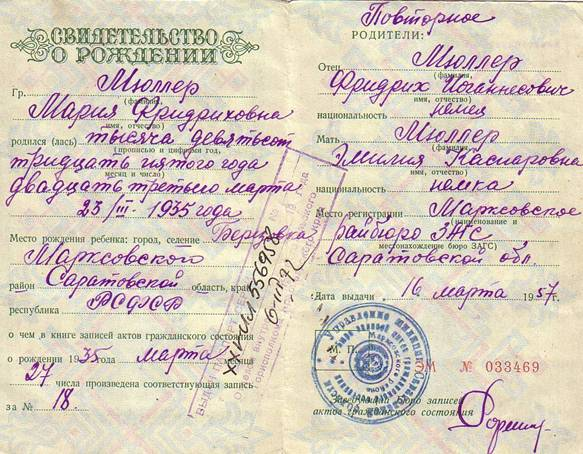 СВИДЕТЕЛЬСТВО
О РОЖДЕНИИ
Гр. Мюллер
(фамилия,
Мария Фридриховна
имя, отчество)
родился (лась) тысяча девятьсот
(прописью и цифрами год,
тридцать пятого года
месяц и число)
двадцать третьего марта
23/III-1935 года
Место рождения ребенка: город, селение
Марксовского
район Саратовской область, край
РСФСР
республика
о чем в книге записей актов гражданского состояния
о рождении 1935 года марта месяца
27 числа произведена соответствующая запись
за № 18.
Повторное
РОДИТЕЛИ:
Отец Мюллер
(фамилия,
Фридрих Иоганнесович
имя, отчество)
национальность немец
Мать Мюллер
(фамилия,
Эмилия Каспаровна
имя, отчество)
национальность немка
Место регистрации Марксовское
(наименование и
райбюро ЗАГС
местонахождение бюро ЗАГС)
Саратовской обл.
Дата выдачи 16 марта 1957г.
М. П.
ЭМ № 033469
Заведующий бюро записей
актов гражданского состояния